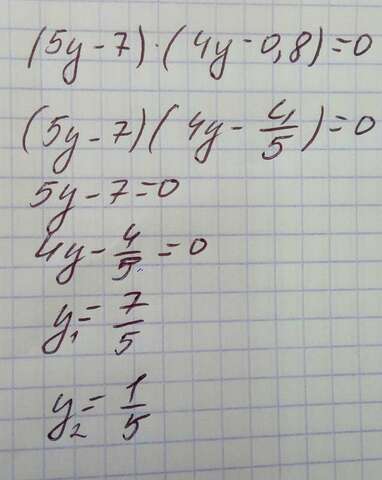 (5y-7)·(4y-0,8)=0
(5y-7)(4y-4/5)=0
5y-7=0
4y-4/5=0
y₁=7/5
y₂=1/5